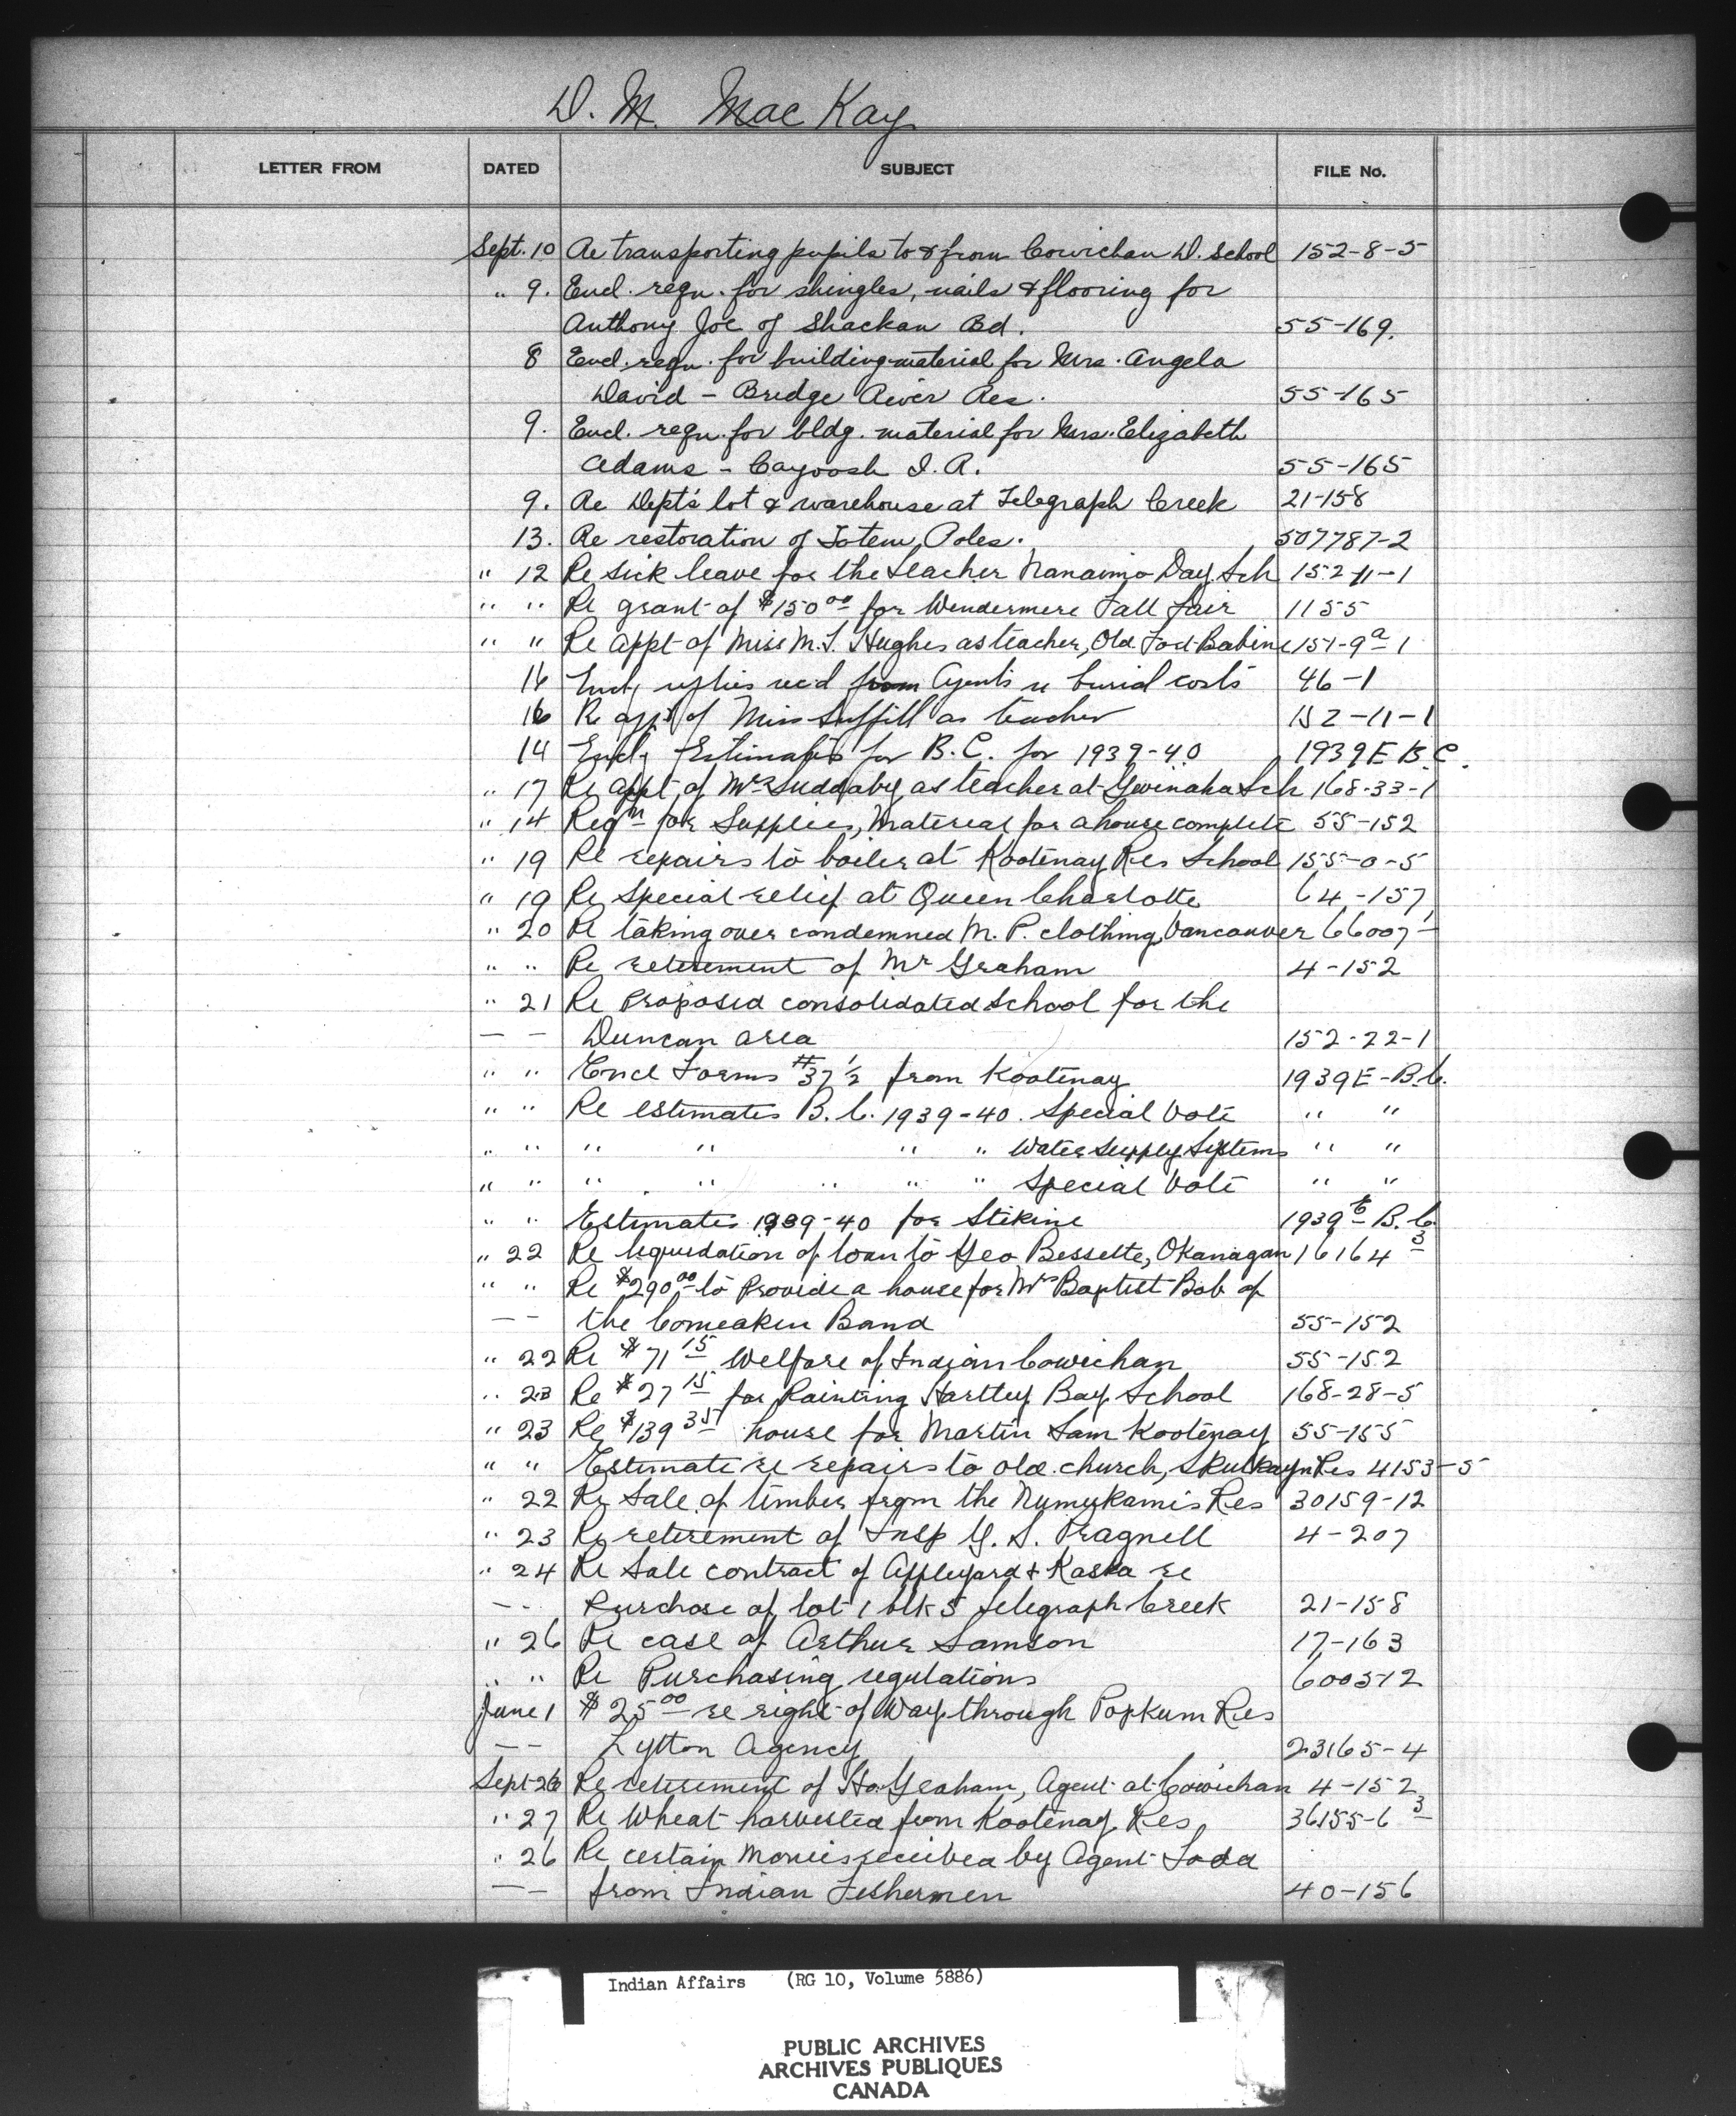 D. M. MacKay
LETTER FROM DATED SUBJECT FILE No.
Sept. 10 Re transporting pupils to & from Cowichan D. School 152-8-5
" 9. Encl. reqn. for shingles, nails & flooring for
Anthony Joe of Shackan Bd. 55-169.
8 Encl. reqn. for building material for Mrs. Angela
David - Bridge River Res. 55-165
9. Encl. reqn. for bldg. material for Mrs. Elizabeth
Adams - Cayoosh I. R. 55-165
9. Re Dept's lot & warehouse at Telegraph Creek 21-158
13. Re restoration of Totem Poles. 507787-2
" 12 Re sick leave for the teacher Nanaimo Day Sch 152-11-1
" " Re grant of $150 00 for Windermere Fall Fair 1155
" " Re appt of Miss M. T. Hughes as teacher, Old Fort Babine 151-9a-1
16 Encl replies rec'd from Agents re burial costs 46-1
16 Re appt of Miss Suffill as teacher 152-11-1
14 Encl Estimates for B.C. for 1939-40 1939 E B.C.
" 17 Re appt of Mr Suddaby as teacher at Gwinaha Sch 168-33-1
" 14 Reqn for Supplies, Material for a house complete 55-152
" 19 Re repairs to boiler at Kootenay Res School 155-0-5
" 19 Re Special relief at Queen Charlotte 64-157
" 20 Re taking over condemned M. P. clothing, Vancouver 66007-
" " Re retirement of Mr Graham 4-152
" 21 Re Proposed consolidated School for the
— — Duncan area 152-22-1
" " Encl Forms #37 1/2 from Kootenay 1939E-B.C.
" " Re estimates B.C. 1939-40 Special Vote " "
" " " " " " Water Supply Systems " "
" " " " " " " Special Vote " "
" " Estimates 1939-40 for Stikine 1939 E B.C.
" 22 Re liquidation of loan to Geo Bessette, Okanagan 16164 3
" " Re $290 00 to Provide a house for Mrs Baptist Bob of
— — the Comeaken Band 55-152
" 22 Re $71 15 Welfare of Indian Cowichan 55-152
" 23 Re $27 15 for Painting Hartley Bay School 168-28-5
" 23 Re $139 35 house for Martin Sam Kootenay 55-155
" " Estimate re repairs to old church, Skulkayn Res 4153-5
" 22 Re Sale of timber from the Numukamis Res 30159-12
" 23 Re retirement of Insp G. S. Pragnell 4-207
" 24 Re Sale contract of Appleyard & Kaska re
— — Purchase of lot 1 blk 5 Telegraph Creek 21-158
" 26 Re case of Arthur Samson 17-163
" " Re Purchasing regulations 600512
June 1 $25 00 re right of Way through Popkum Res
— — Lytton Agency 23165-4
Sept 26 Re retirement of H. Graham, Agent at Cowichan 4-152
" 27 Re Wheat harvested from Kootenay Res 36155-6 3
" 26 Re certain Monies received by Agent Todd
— — from Indian Fishermen 40-156
Indian Affairs (RG 10, Volume 5886)
PUBLIC ARCHIVES
ARCHIVES PUBLIQUES
CANADA